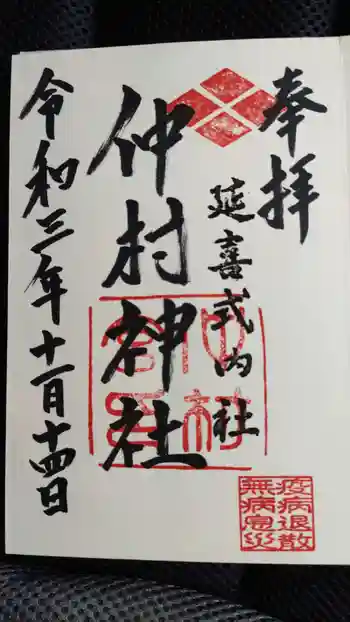 奉拝
延喜式内社
仲村神社
令和三年十一月十四日
仲村
宮司
疫病退散
無病息災